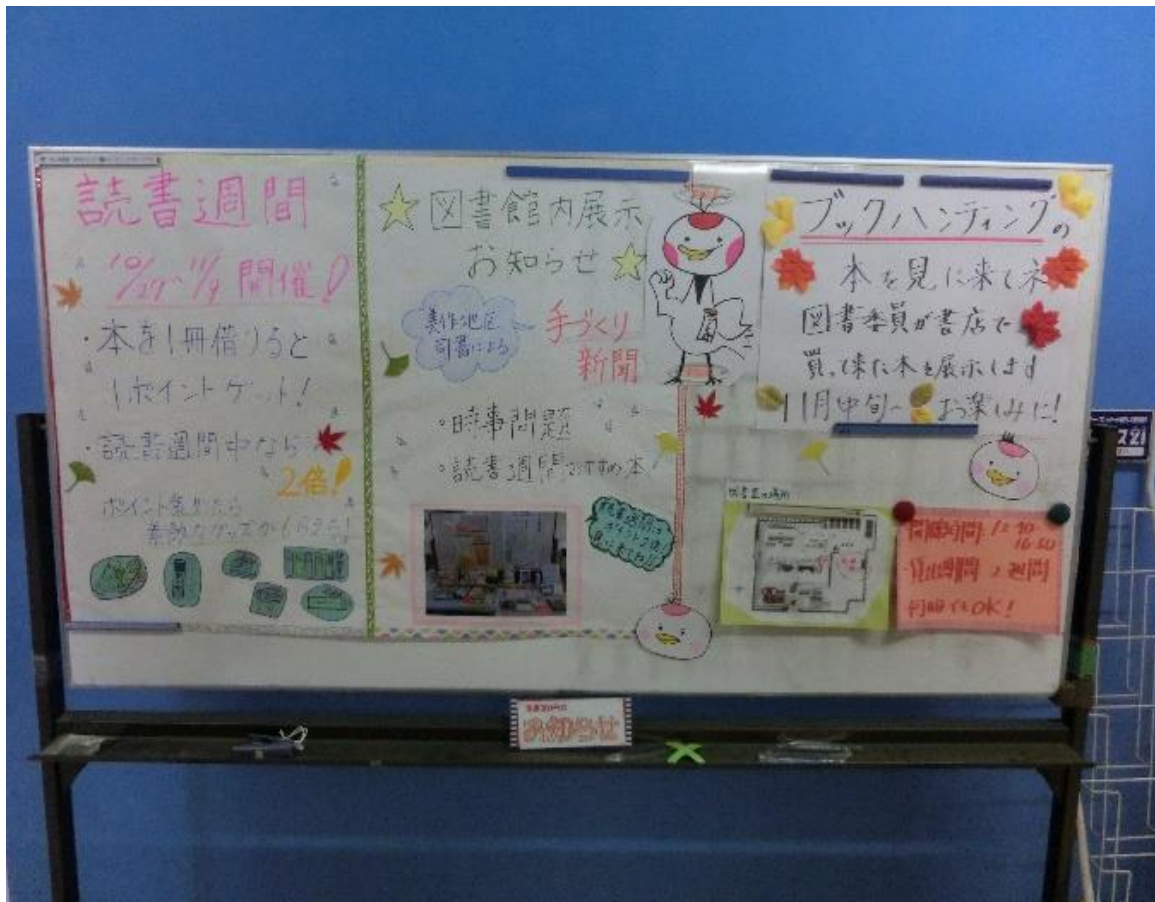 読書週間
10/27~11/9 開催!
・本を1冊借りると
1ポイントゲット!
・読書週間中なら
2倍!
ポイント集めたら
素敵なグッズがもらえる!
図書館内展示
お知らせ
美作地区
司書による
手づくり
新聞
・時事問題
・読書週間おすすめ本
ブックハンティングの
本を見に来てネ
図書委員が書店で
買って来た本を展示します
11月中旬~ お楽しみに!
図書室の場所
開館時間
貸出期間 2週間
何冊でもOK!
お知らせ